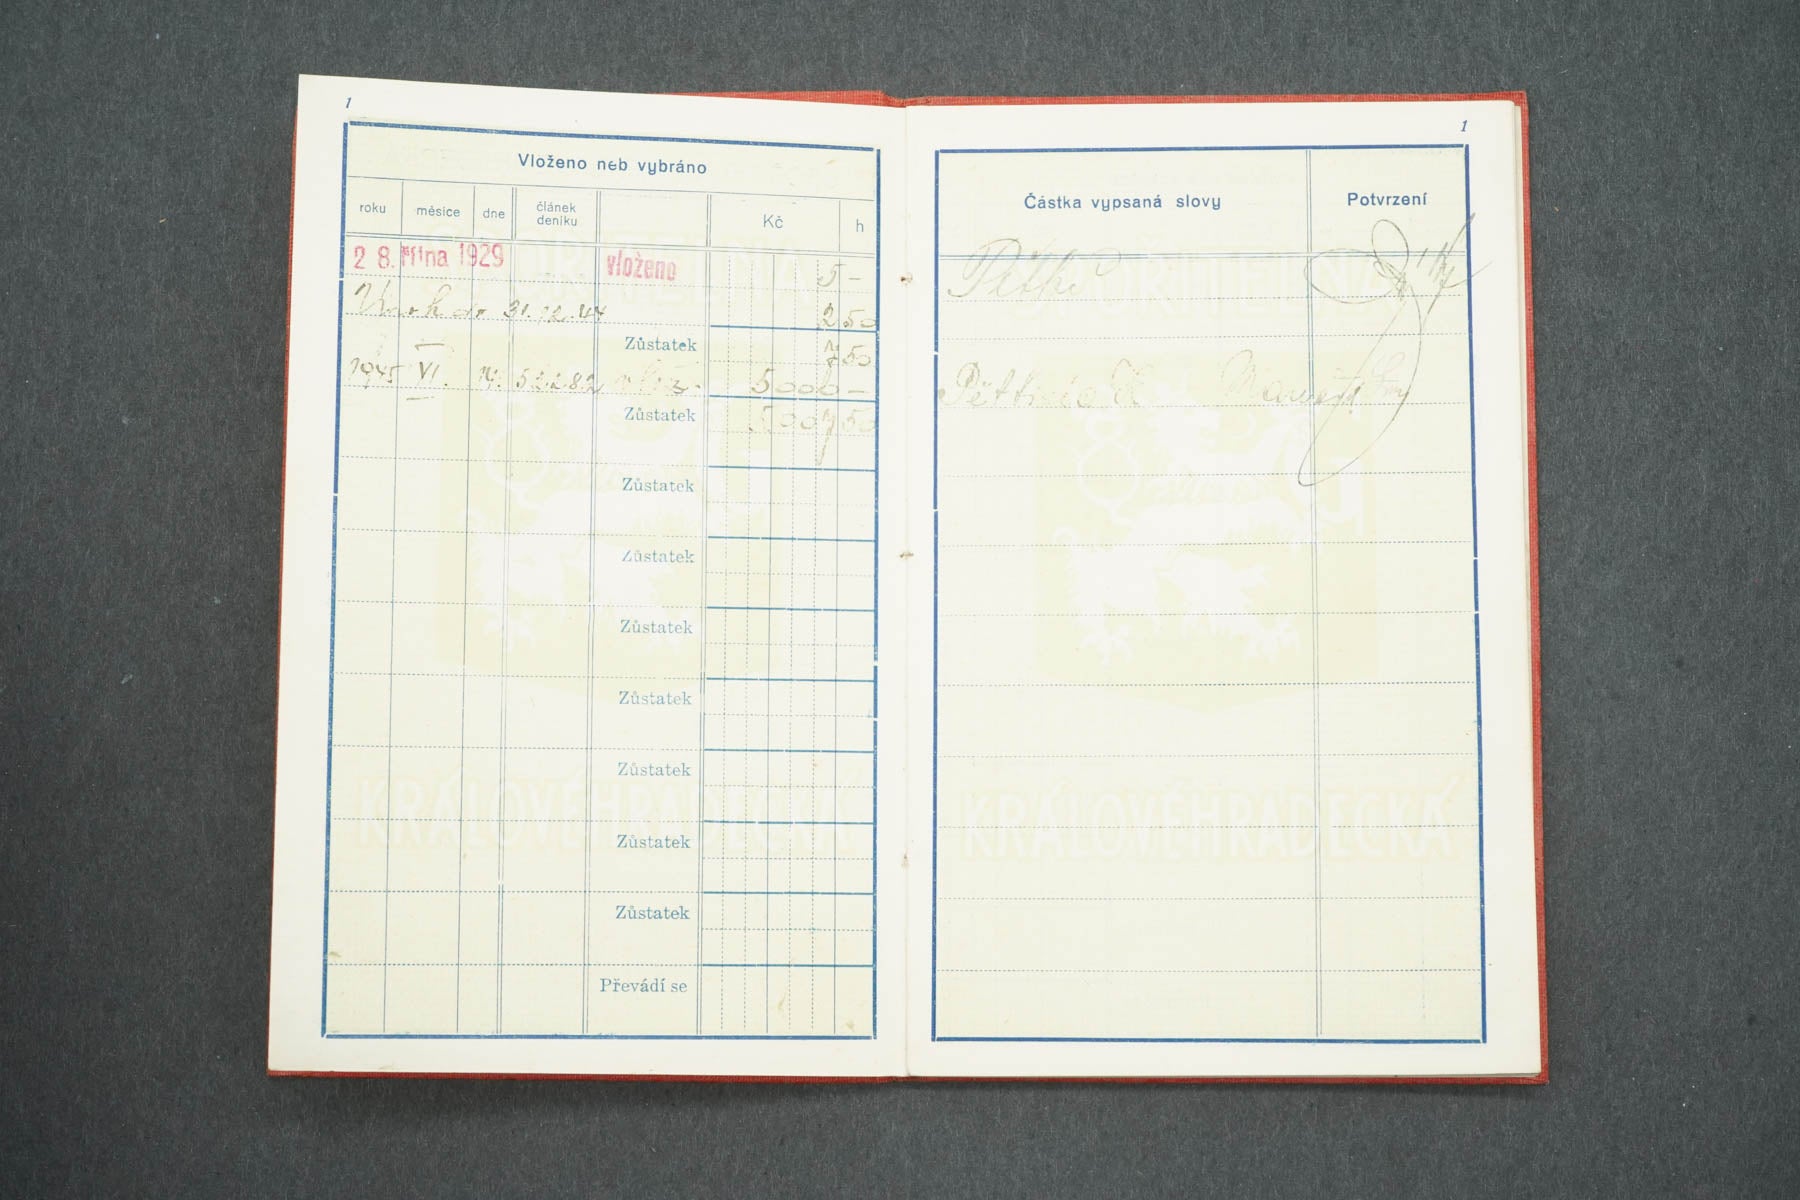 1
Vloženo neb vybráno
roku měsíce dne článek deníku Kč h
28. října 1929 vloženo 5 –
31. 12. 44 2 50
Zůstatek 7 50
1945 VI. 14. 52282 vlož. 5000 –
Zůstatek 5007 50
Zůstatek
Zůstatek
Zůstatek
Zůstatek
Zůstatek
Zůstatek
Zůstatek
Převádí se
KRÁLOVÉHRADECKÁ
1
Částka vypsaná slovy Potvrzení
Pět Kč
Pěttisíc K
KRÁLOVÉHRADECKÁ